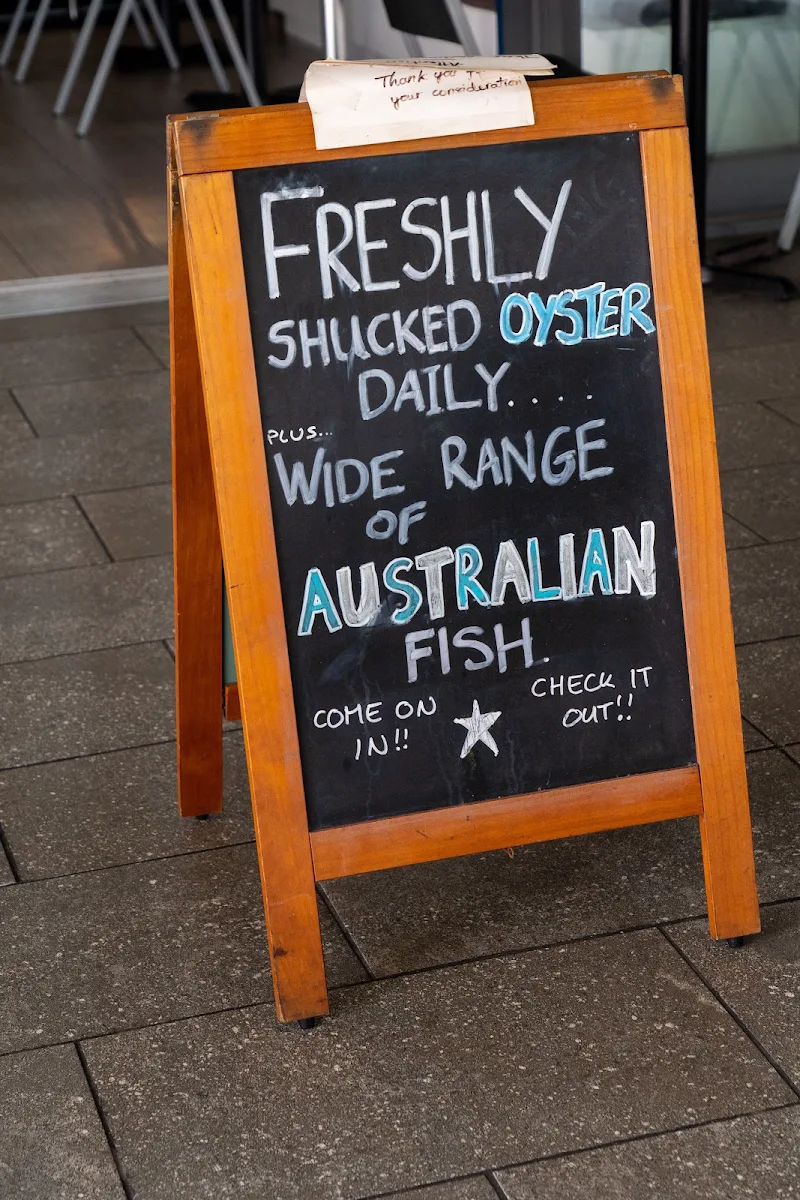 Thank you
your consideration
FRESHLY
SHUCKED OYSTER
DAILY....
PLUS...
WIDE RANGE
OF
AUSTRALIAN
FISH.
COME ON
IN!!
CHECK IT
OUT!!